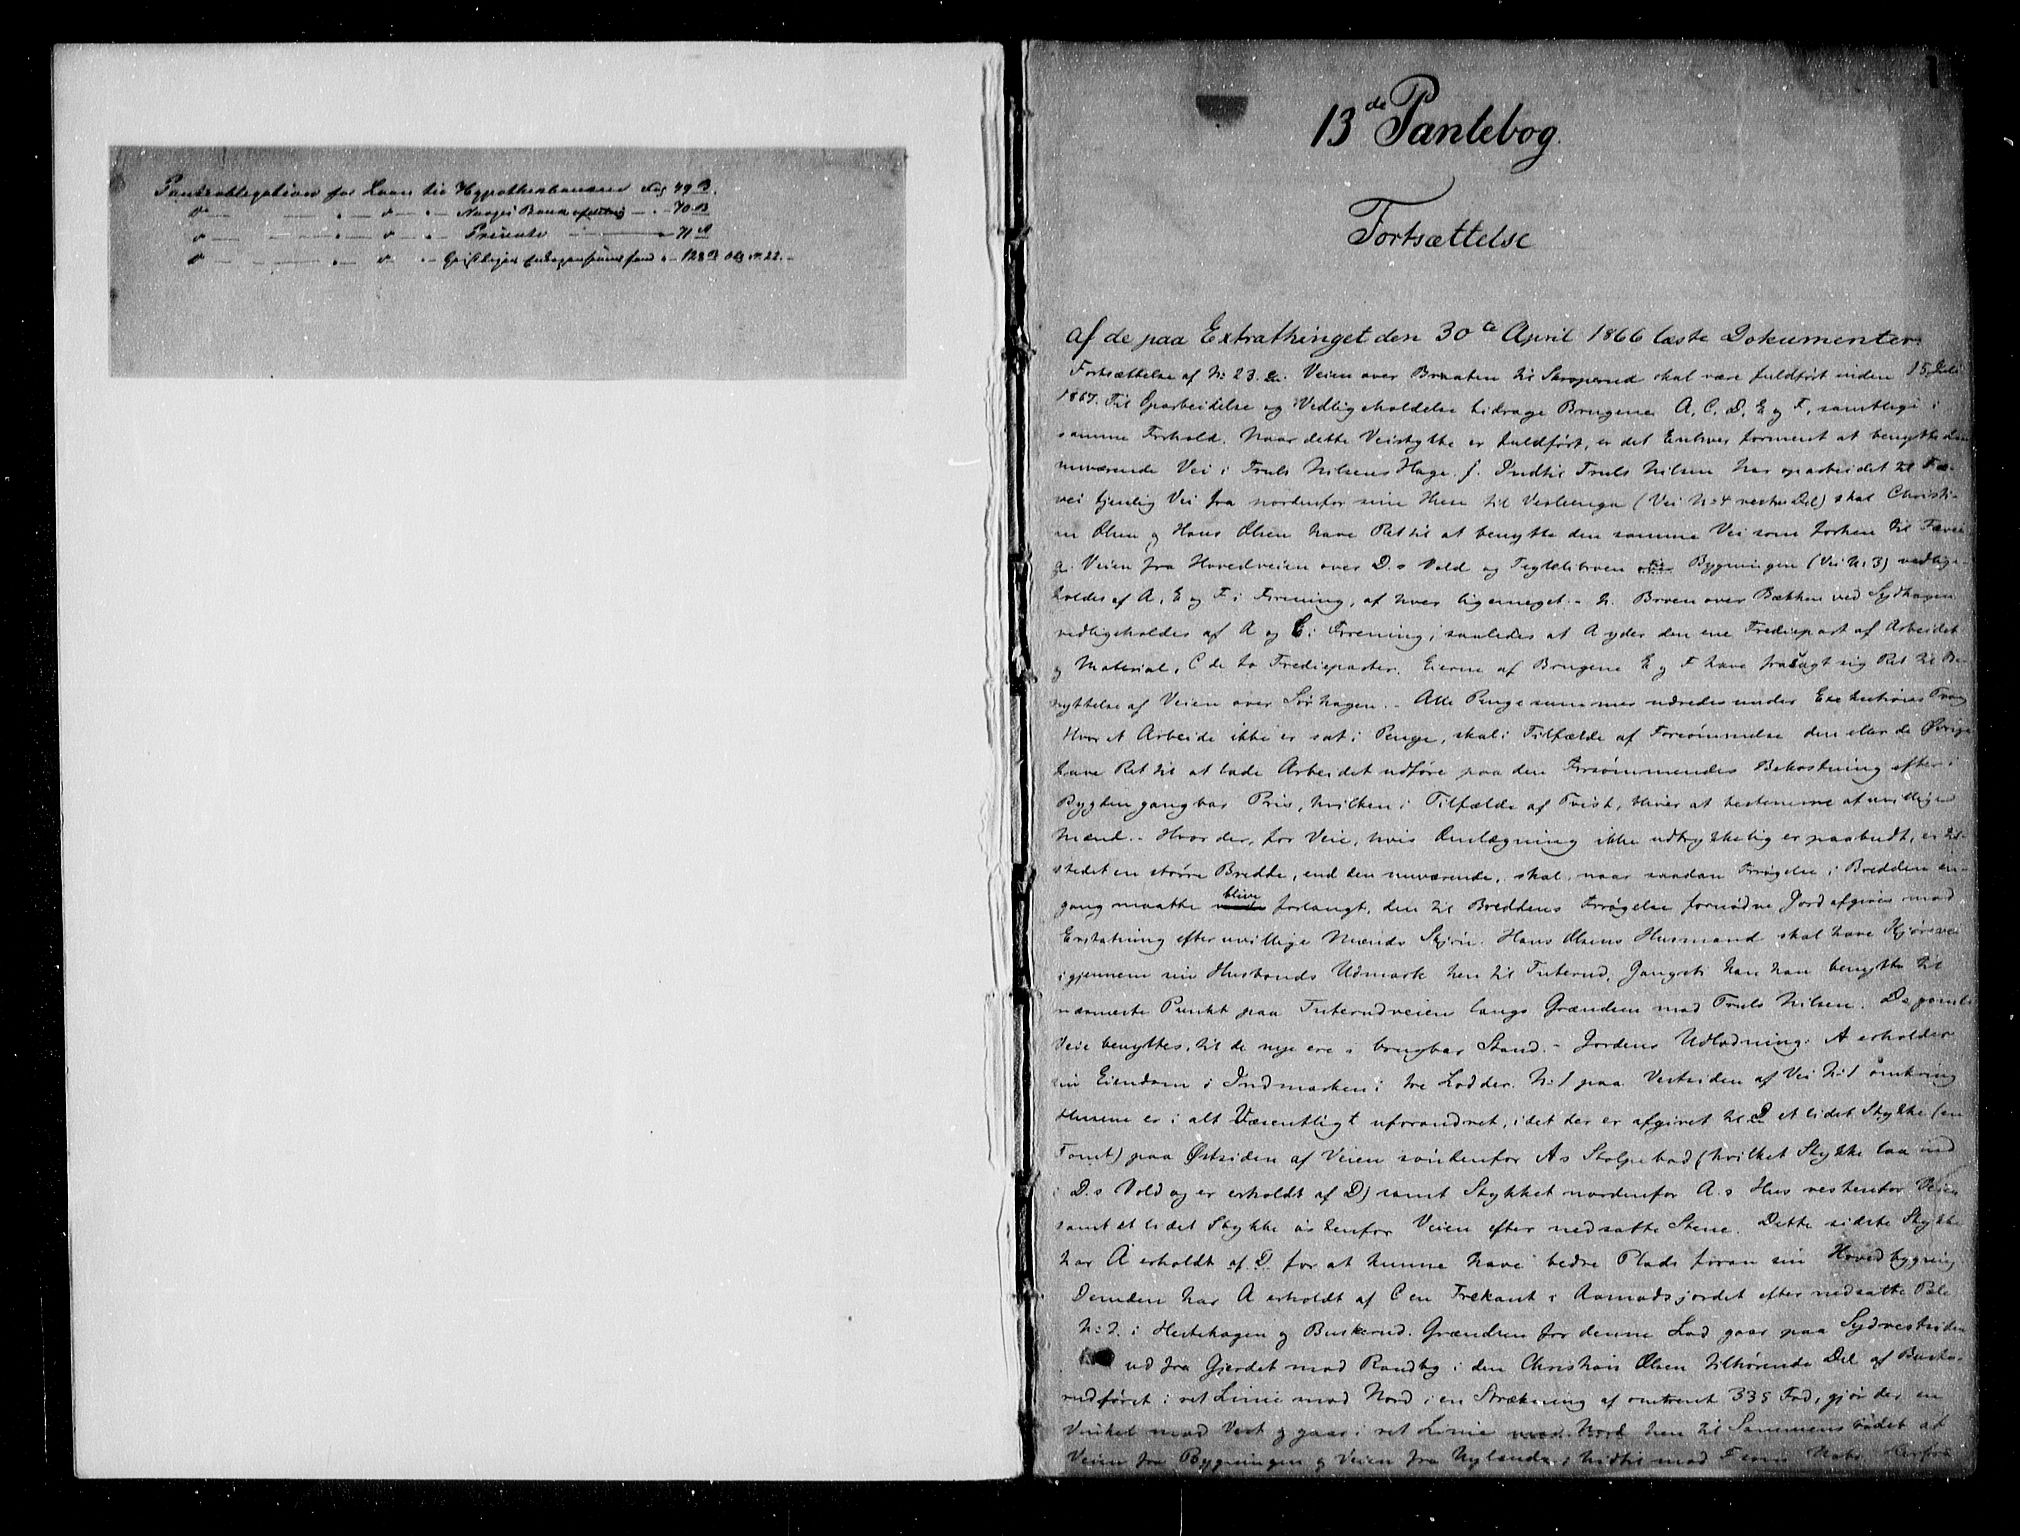 Panteobligation for Laan til Hypothekbanken Pag 49 B.
do — — " — do — " — Norges Bank afdeling — " — 70 B
do — — " — do — " — Private — " — 71 A
do — — " — do — " — Geistliges Enkepensionsfond " — 128 B Obg N. 22. –
1
13de Pantebog.
Fortsættelse
af de paa Extrathinget den 30te April 1866 læste Dokumenter.
Fortsættelse af No 23. e. Veien over Braaten til skal være fuldført inden 15 Juli
1867. Til Oparbeidelse og Vedligeholdelse bidrage Brugene A, C, D, E og F, samtlige i
samme Forhold. Naar dette Veistykke er fuldført, er det Enhver formeent at benytte den
nuværende Vei i Truls Nilsens Hage. f. Indtil Truls Nilsen har oparbeidet til Fæ-
vei tjenlig Vei fra nordenfor sine Huse til Vestenga (Vei No 4 vestre Del) skal Christi-
an Olsen og Hans Olsen have Ret til at benytte den samme Vei som forhen til Fævei
g. Veien fra Hovedveien over D.s Vold og Teglelibroen til Bygningen (Vei No 3) vedlige-
holdes af A, E og F i Forening, af hver ligemeget. – h. Broen over Bækken ved Sydhagen
vedligeholdes af A og C i Forening, saaledes at A yder den ene Trediepart af Arbeidet
og Material, C de to Trediaparter. Eierne af Brugene E og F have frasagt sig Ret til Be-
nyttelse af Veien over Sørhagen. – Alle Pengesummer udredes under Exekutions Tvang
Hvor et Arbeide ikke er sat i Penge, skal i Tilfælde af Forsømmelse den eller de Øvrige
have Ret til at lade Arbeidet udføre paa den Forsømmendes Bekostning efter i
Bygden gangbar Pris, hvilken i Tilfælde af Tvist, bliver at bestemme af uvillige
Mænd. – Hvor der, for Veie, hvis Omlægning ikke udtrykkelig er paabudt, er til-
stedet en større Bredde, end den nuværende, skal, naar saadan Forøgelse i Bredden en-
gang maatte blive forlangt, den til Breddens Forøgelse fornødne Jord afgives mod
Erstatning efter uvillige Mænds Skjøn. Hans Olsens Husmand skal have Kjørevei
igjennem sin Husbonds Udmark hen til Tuterud, Gangsti kan han benytte til
nærmeste Punkt paa Tuterudveien langs Grændsen mod Truls Nilsen. De gamle
Veie benyttes, til de nye ere i brugbar Stand. – Jordens Udlodning: A erholder
sin Eiendom i Indmarken i tre Lodder. No 1 paa Vestsiden af Vei No 1 omkring
Husene er i alt Væsentligt uforandret, idet der er afgivet til D et lidet Stykke (en
Tomt) paa Østsiden af Veien søndenfor A.s Stolpebod (hvilket Stykke laa ind
i D.s Vold og er erholdt af D) samt Stykket nordenfor A.s Hus vestenfor Veien
samt et lidet Stykke østenfor Veien efter nedsatte Stene. Dette sidste Stykke
har A erholdt af D. for at kunne have bedre Plads foran sin Hovedbygning
Desuden har A erholdt af C en Trekant i Aamodsjordet efter nedsatte Pæle
No 2. i Hestehagen og Buskerud. Grændsen for denne Lod gaar paa Sydvestsiden
ud fra Gjerdet mod Randby i den Christian Olsen tilhørende Del af Buske-
rudføret i ret Linie mod Nord i en Strækning af omtrent 335 Fod, gjør der en
Vinkel mod Vest og gaar i ret Linie mod Nord hen til Sammenstødet af
Veien fra Bygningen og Veien fra Nylænde, hidtil mod Derfra